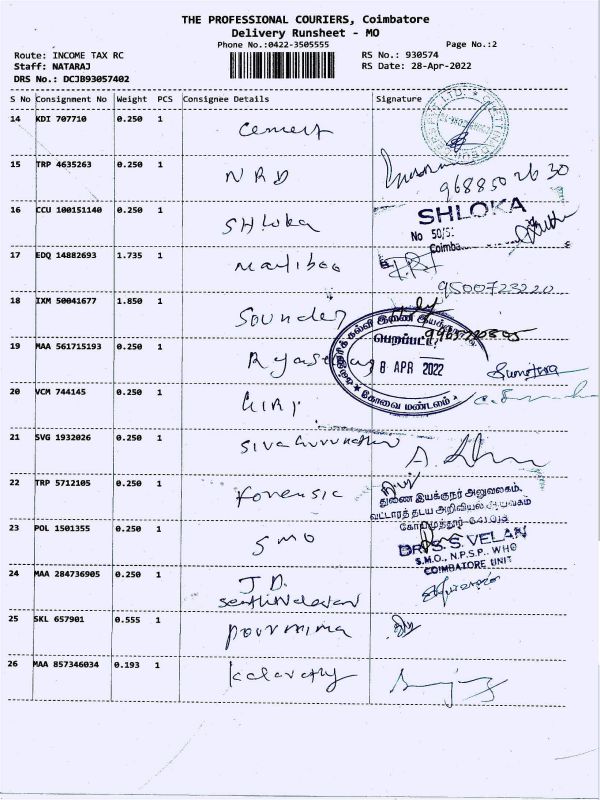 THE PROFESSIONAL COURIERS, Coimbatore
Delivery Runsheet - MO
Phone No.:0422-3505555 Page No.:2
Route: INCOME TAX RC RS No.: 930574
Staff: NATARAJ RS Date: 28-Apr-2022
DRS No.: DCJB93057402
S No Consignment No Weight PCS Consignee Details Signature
14 KDI 707710 0.250 1 Cement
15 TRP 4635263 0.250 1 NRD
9688502630
16 CCU 100151140 0.250 1 SHloka SHLOKA
No 50/5
Coimba
17 EDQ 14882693 1.735 1
9500723220
18 IXM 50041677 1.850 1 Sounder
பெறப்பட்டது
19 MAA 561715193 0.250 1
8 APR 2022
கோவை மண்டலம்
20 VCM 744145 0.250 1 GIRI
21 SVG 1932026 0.250 1 Sivagurunathan
22 TRP 5712105 0.250 1 forensic
துணை இயக்குநர் அலுவலகம்,
வட்டாரத் தடய அறிவியல் ஆய்வகம்
கோயமுத்தூர்-641018
23 POL 1501355 0.250 1 SMO
DR.S.S. VELAN
S.M.O., N.P.S.P., WHO
COIMBATORE UNIT
24 MAA 284736905 0.250 1 J.D.
Senthilvelavan
25 SKL 657901 0.555 1 pournima
26 MAA 857346034 0.193 1 kalavathy